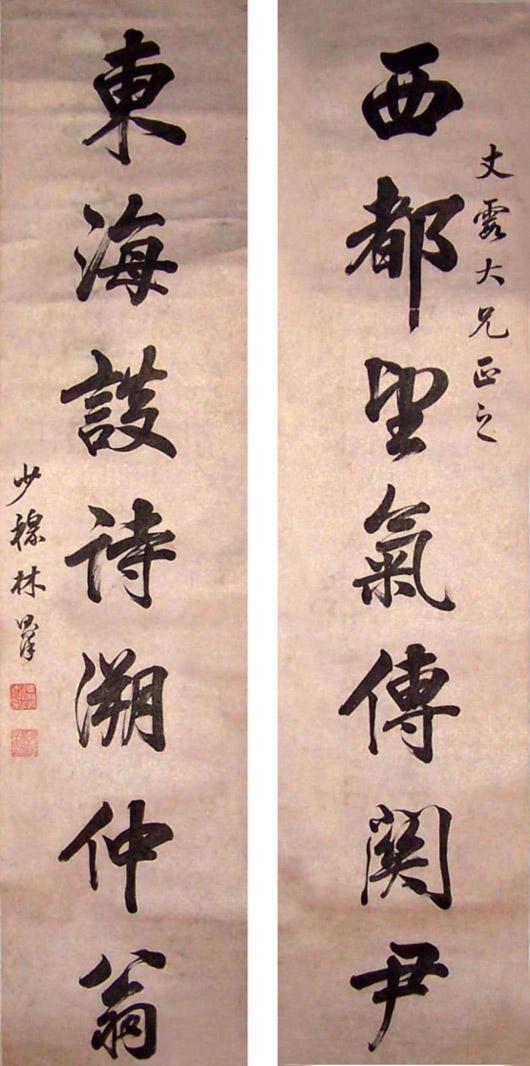 大兄正之
西都望氣傳關尹
東海談詩溯仲翁
少穆林則徐